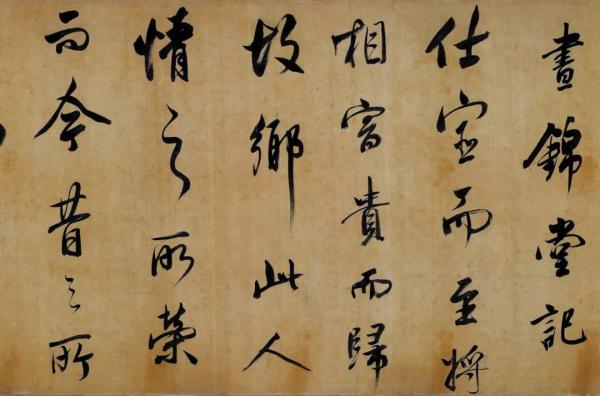 晝錦堂記
仕宦而至將
相富貴而歸
故鄉此人
情之所榮
而今昔之所